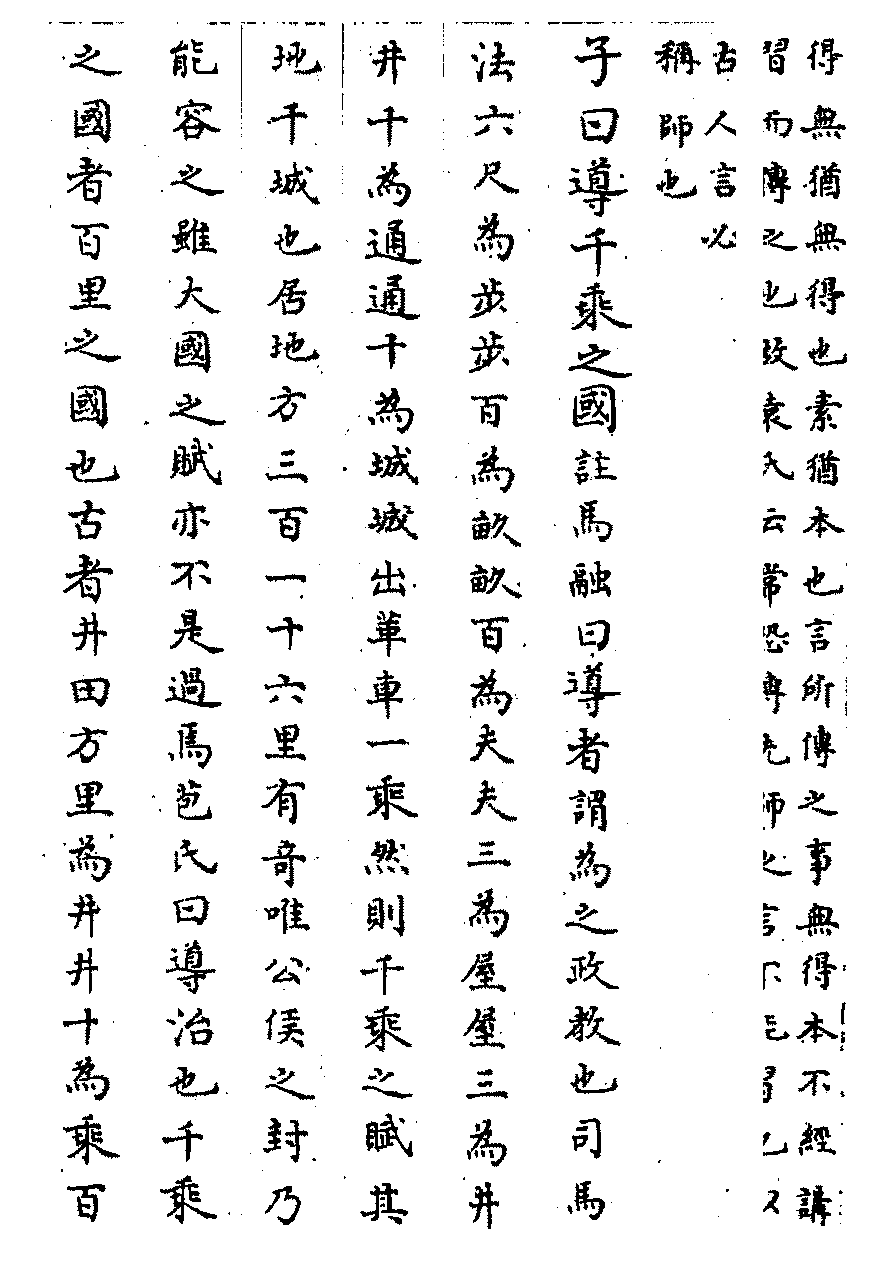 得無猶無得也素猶本也言所傳之事無得本不經講
習而傳之也故袁氏云常恐傳先師之言不能習也以
古人言必
稱師也
子曰導千乘之國註馬融曰導者謂為之政教也司馬
法六尺為步步百為畝畝百為夫夫三為屋屋三為井
井十為通通十為城城出革車一乘然則千乘之賦其
地千城也居地方三百一十六里有奇唯公侯之封乃
能容之雖大國之賦亦不是過焉苞氏曰導治也千乘
之國者百里之國也古者井田方里為井井十為乘百